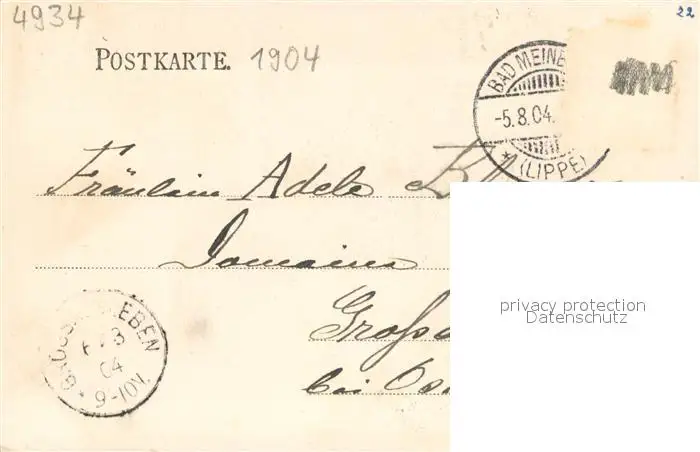 4934
22
POSTKARTE. 1904
BAD MEINB
-5.8.04.
* (LIPPE)
Fräulein Adele
Domaine
Gross
bei
EBEN
04
9-10V.
privacy protection
Datenschutz